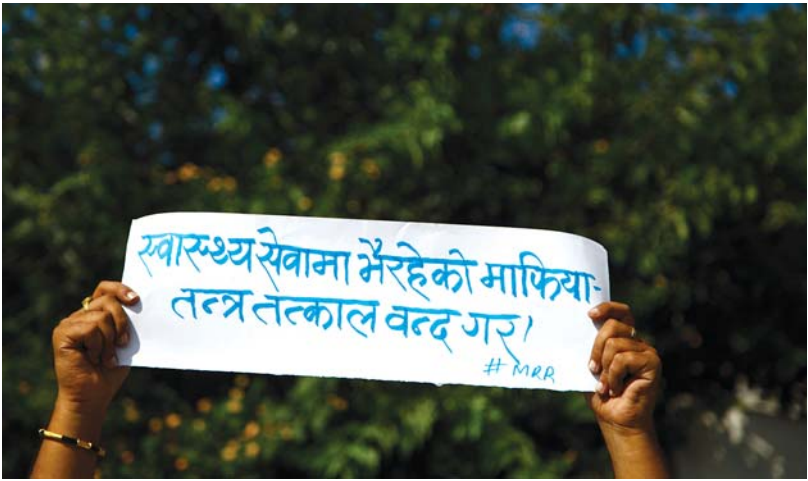 स्वास्थ्य सेवामा भैरहेको माफिया-
तन्त्र तत्काल वन्द गर!
#MRR